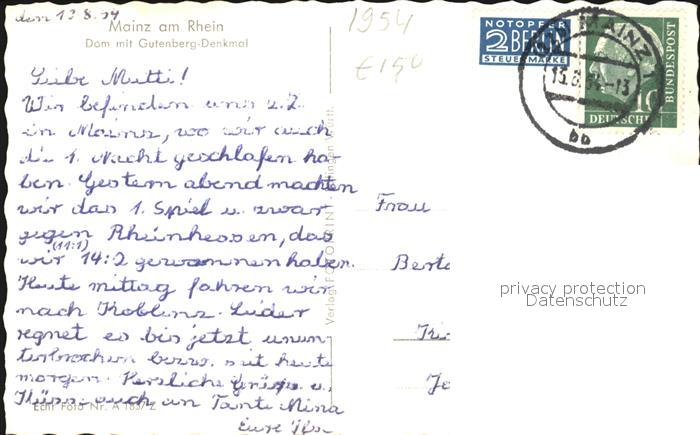 den 13.8.54
Mainz am Rhein
Dom mit Gutenberg-Denkmal
1954
£150
NOTOPFER
2 BERLIN
STEUERMARKE
MAINZ 1
13.8.54-13
bb
10
DEUTSCHE
BUNDESPOST
Liebe Mutti!
Wir befinden uns z.Z.
in Mainz, wo wir auch
die 1. Nacht geschlafen ha-
ben. Gestern abend machten
wir das 1. Spiel u. zwar
gegen Rheinhessen, das
(11:1)
wir 14:2 gewonnen haben.
Heute mittag fahren wir
nach Koblenz. Leider
regnet es bis jetzt unun
terbrochen bezw. seit heute
morgen. Herzliche Grüße u.
Küsse auch an Tante Mina
Eure
Echt Foto Nr. A 1837 Z
Verlag FOTOPRINT
Frau
Berta
privacy protection
Datenschutz